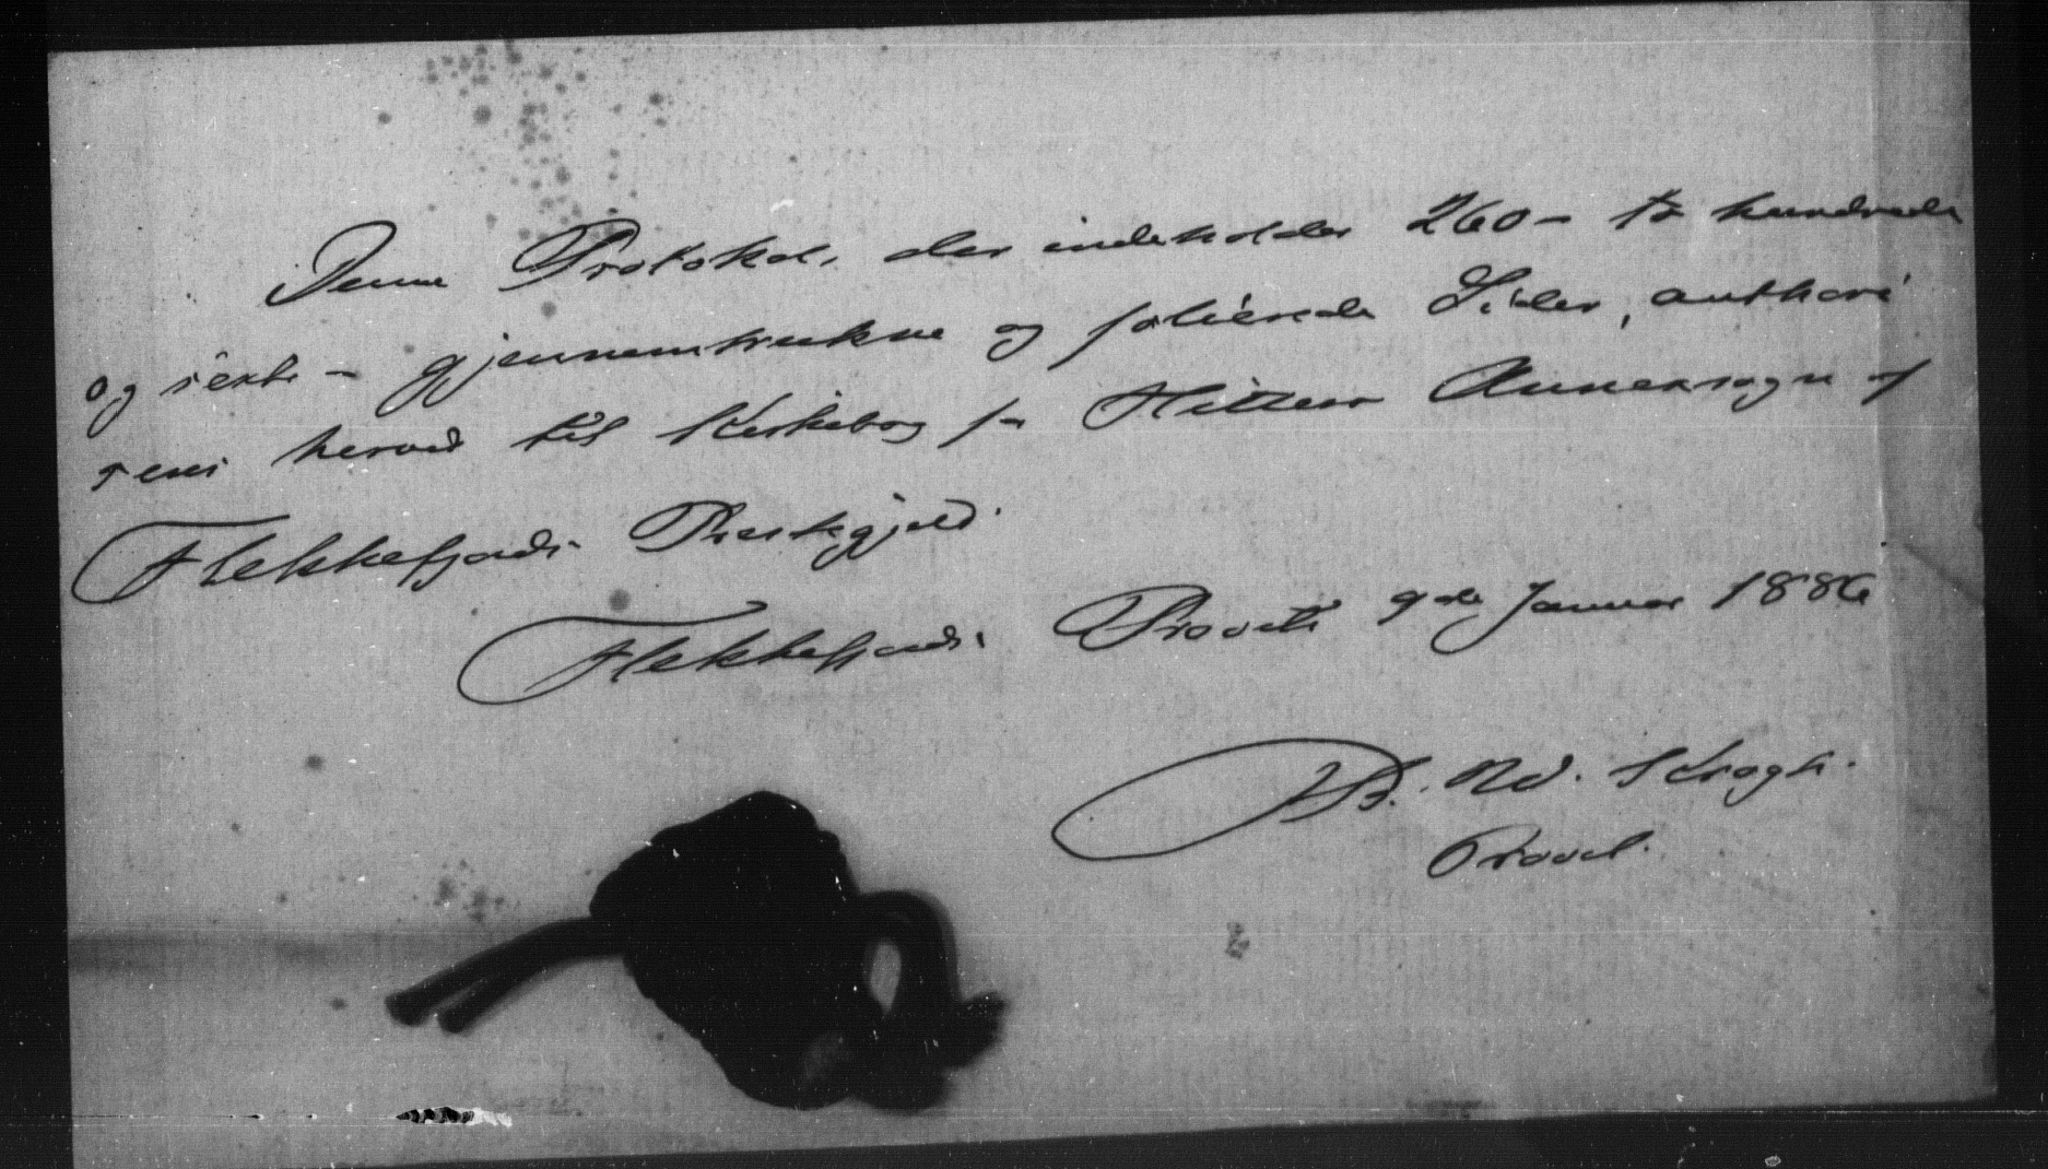 Denne Protokol, der indeholder 260 – to hundrede
og sexti – gjennemtrukne og folierede Sider, authori
seres herved til Kirkebog for Hitterø Annexsogn af
Flekkefjords Prestegjeld.
Flekkefjords Provsti 9de Januar 1886
Krogh.
Provst.